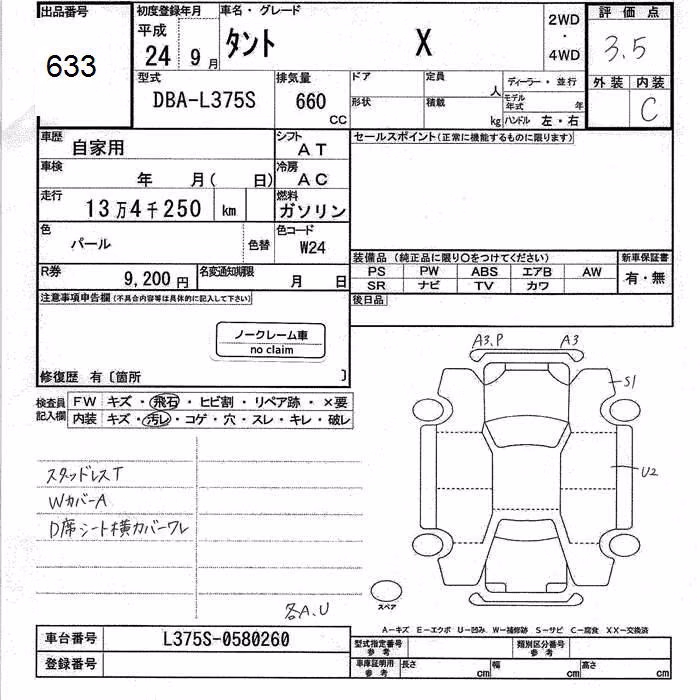 出品番号
633
初度登録年月
平成
24 9 月
車名・グレード
タント X
2WD
・
4WD
評価点
3.5
外装 内装
C
型式
DBA-L375S
排気量
660
CC
ドア 定員 人 ディーラー・並行
形状 積載 kg モデル年式 年
ハンドル 左・右
車歴
自家用
シフト
AT
セールスポイント(正常に機能するものに限ります)
車検
年 月( 日)
冷房
AC
走行
13万4千250 km
燃料
ガソリン
色
パール
色替
色コード
W24
装備品 (純正品に限り○をつけてください)
新車保証書
PS PW ABS エアB AW
SR ナビ TV カワ
有・無
R券
9,200円
名変通知期限
月 日
後日品
注意事項申告欄(不具合内容等は具体的に記入して下さい)
ノークレーム車
no claim
修復歴 有〔箇所 〕
検査員
記入欄
FW キズ・飛石・ヒビ割・リペア跡・×要
内装 キズ・汚レ・コゲ・穴・スレ・キレ・破レ
スタッドレスT
WカバーA
D席シート横カバーワレ
各A.U
A3.P A3
S1
U2
スペア
A―キズ E―エクボ U―凹み W―補修跡 S―サビ C―腐食 XX―交換済
車台番号 L375S-0580260
登録番号
型式指定番号
参考
類別区分番号
参考
車庫証明用
参考
長さ cm 幅 cm 高さ cm